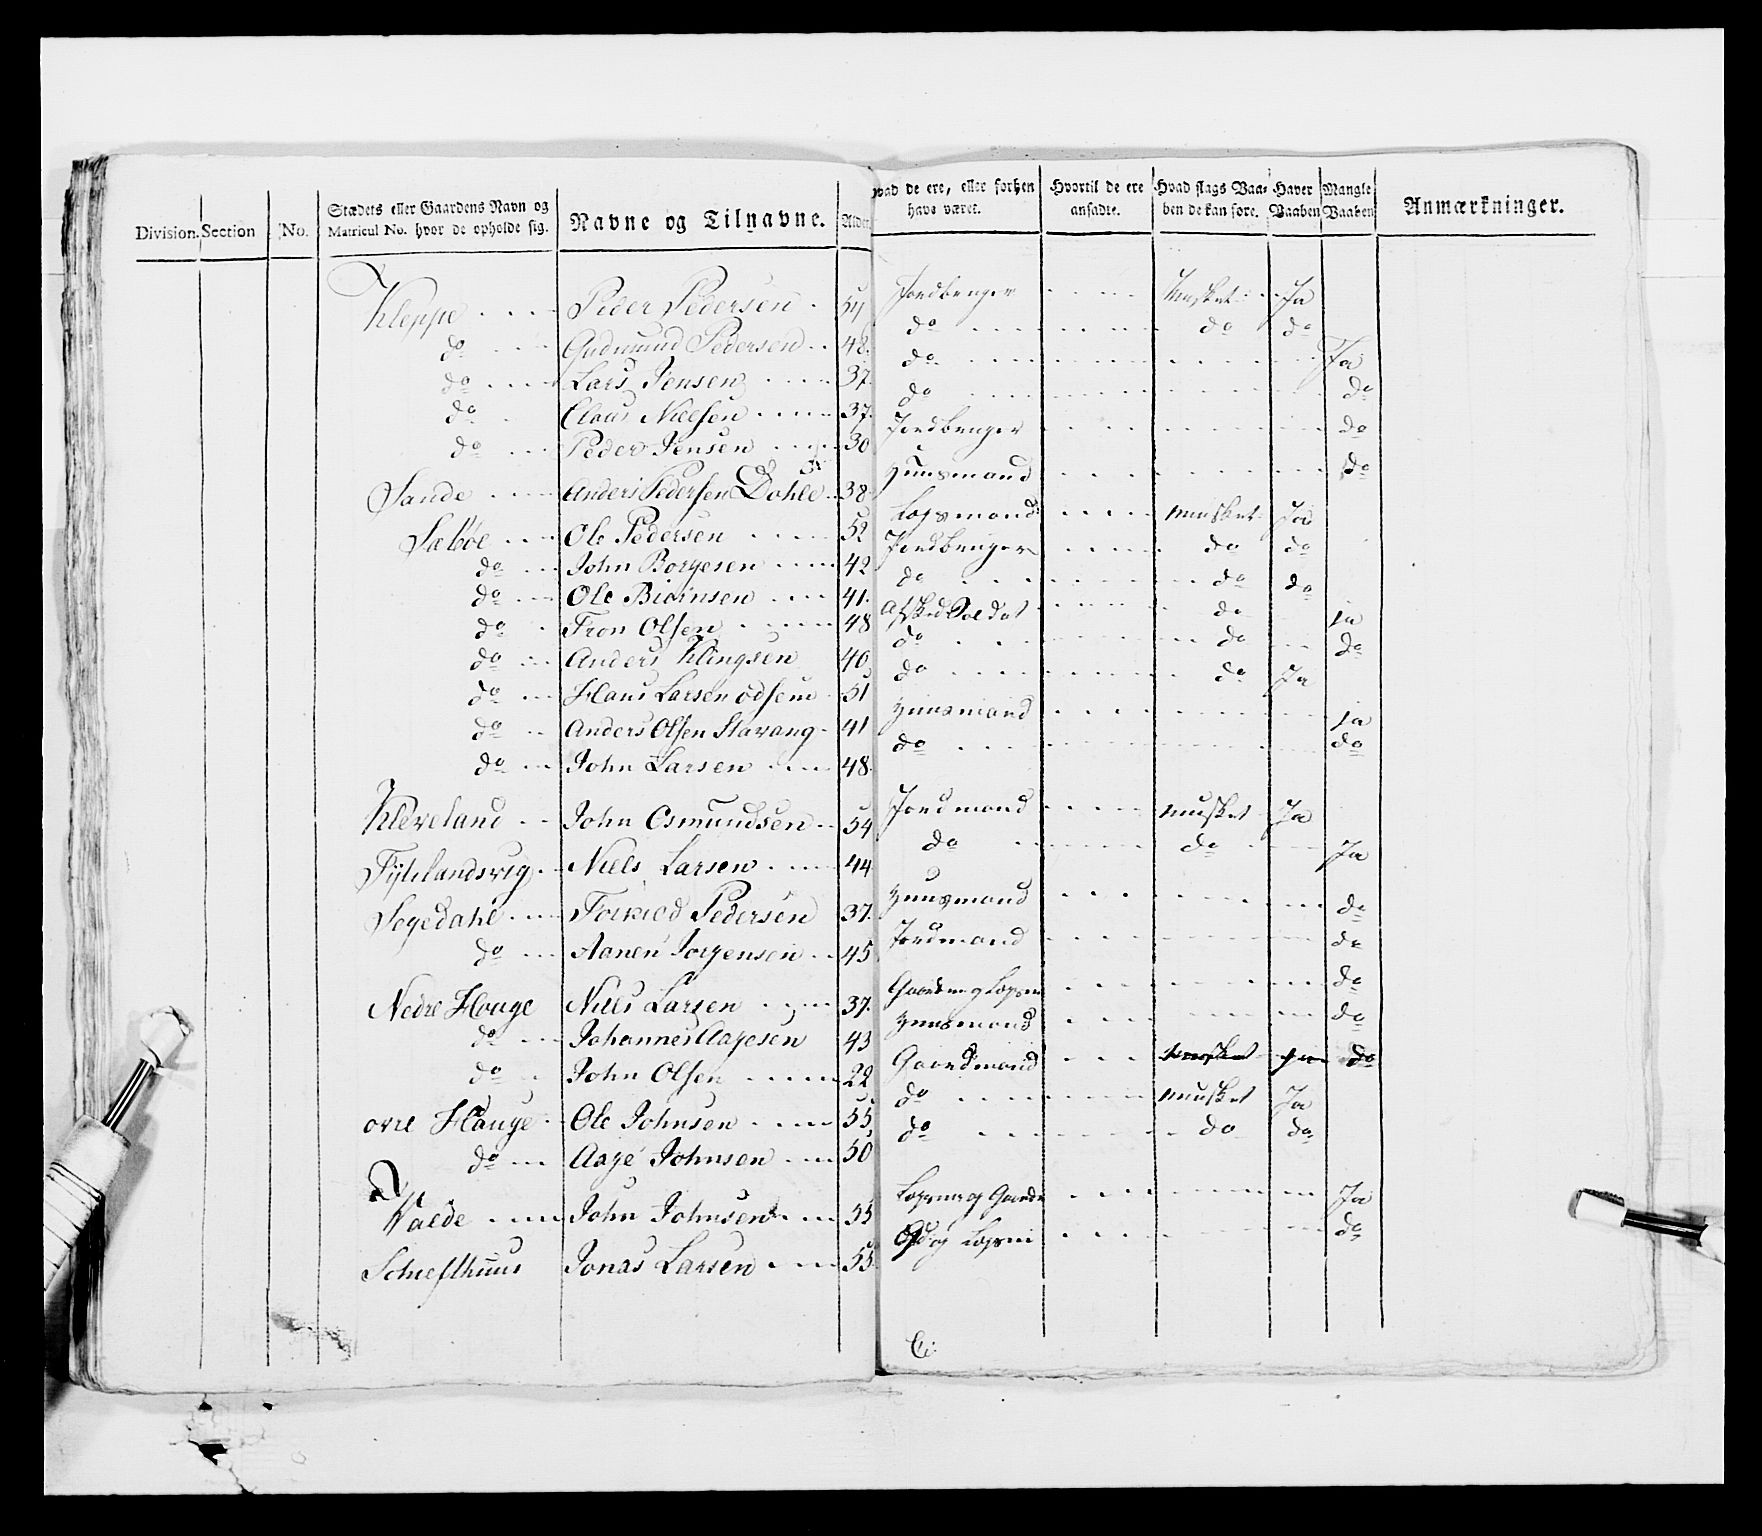 Division. Section No. Stædets eller Gaardens Navn og Matricul No. hvor de opholde sig. Navne og Tilnavne. Alder hvad de ere, eller forhen have været. Hvortil de ere ansadte. Hvad slags Vaaben de kan føre. Haver Vaaben Mangle Vaaben Anmærkninger.
Kleppe Peder Pedersen 54 Jordbruger Musket Ja
do Gudmund Pedersen 48. do do do
do Lars Jensen 37. do Ja
do Claus Nielsen 37. do do
do Peder Jensen 30 Jordbruger do
Sande Anders Pedersen Dohle 38. Huusmand do
Sæbøe Ole Pedersen 52 Losmand musket Ja
do John Borgesen 42 Jordbruger do do
do Ole Biørnsen 41. do do do
do Tron Olsen 48 Afsked Soldat do ja
do Anders Klingsen 40 do do do
do Hans Larsen 51 do do Ja
do Anders Olsen Stavang 41 Huusmand ja
do John Larsen 48. do do
Kleveland John Osmundsen 54 Jordmand musket Ja
Niels Larsen 44 do do Ja
Sogedahl Pedersen 37. Huusmand do
do Aanen Jorgensen 45 Jordmand do
Nedre Houge Niels Larsen 37. do
do Johannes Aagesen 43 Huusmand do
do John Olsen 22 Gaardmand musket do
ovre Hauge Ole Johnsen 55 do musket Ja
do Aage Johnsen 50 do do do
Valde John Johnsen 55 Ja
Jonas Larsen 55. do